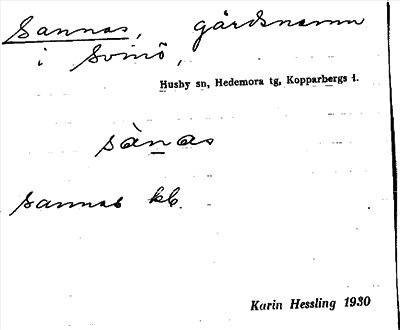 Sannas, gårdsnamn
i Svinö,
Husby sn, Hedemora tg, Kopparbergs l.
sànas
sannas kb.
Karin Hessling 1930